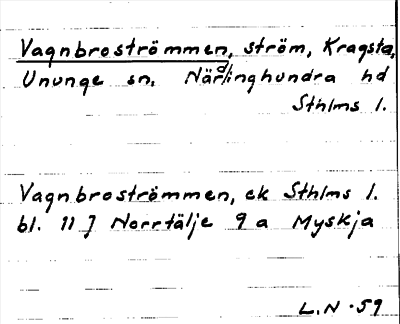 Vagnbroströmmen, ström, Kragsta,
Ununge sn. Närdinghundra hd
Sthlms l.
Vagnbroströmmen, ek Sthlms l.
bl. 11 J Norrtälje 9 a Myskja
L.N -59